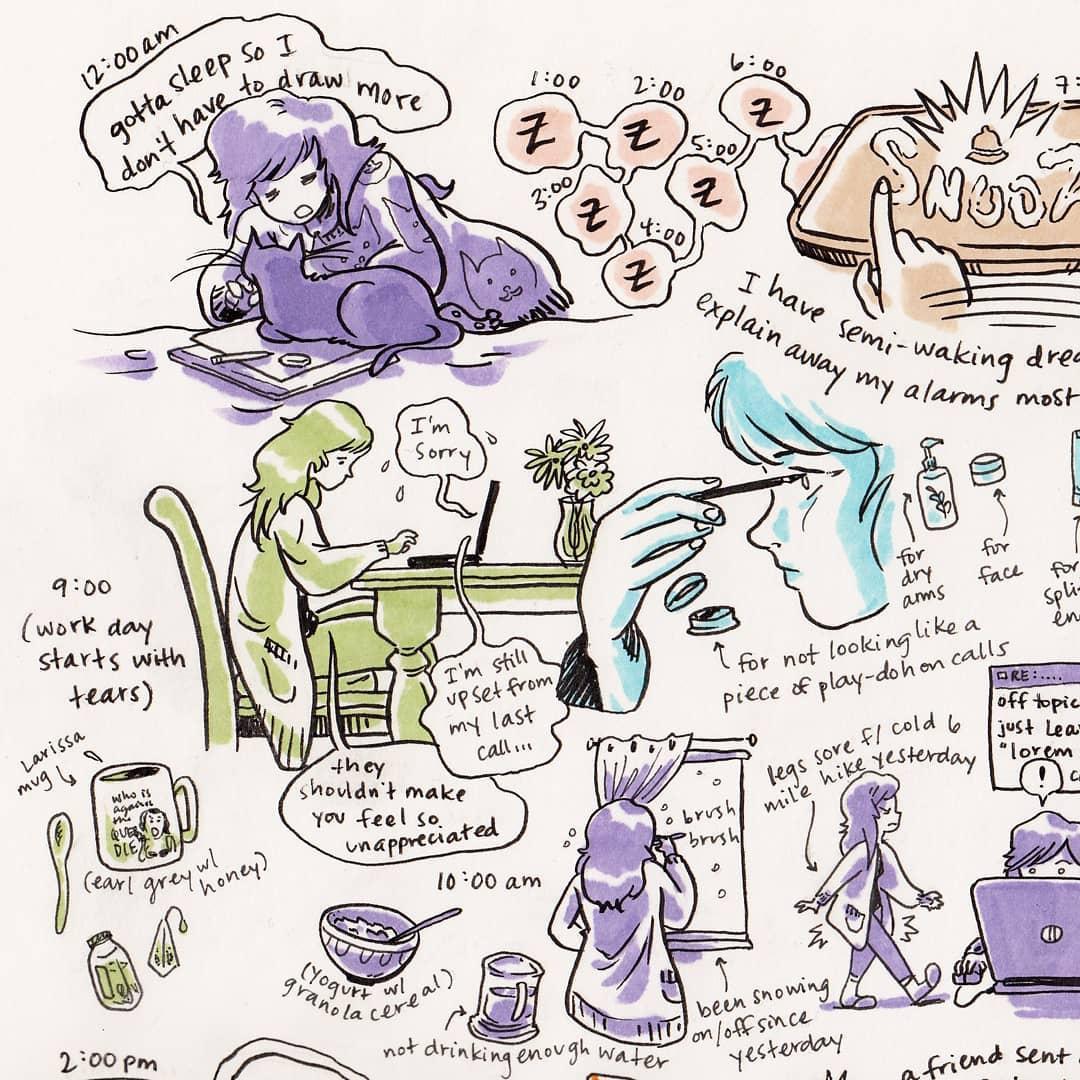 12:00am
gotta sleep so I
don't have to draw more
1:00
2:00
3:00
4:00
5:00
6:00
7:
Z
Z
Z
Z
Z
Z
SNOOZ
I have semi-waking
explain away my alarms most
9:00
(work day
starts with
tears)
I'm
sorry
I'm still
upset from
my last
call...
they
shouldn't make
you feel so
unappreciated
for
dry
arms
for
face
for
for not looking like a
piece of play-doh on calls
Larissa
mug
who is
again
me
QUE
DIE
(earl grey w/
honey)
10:00 am
(yogurt w/
granola cereal)
not drinking enough water
brush
brush
been snowing
on/off since
yesterday
legs sore f/ cold 6
mile hike yesterday
RE:....
off topic
just
"lorem
!
2:00 pm
a friend sent